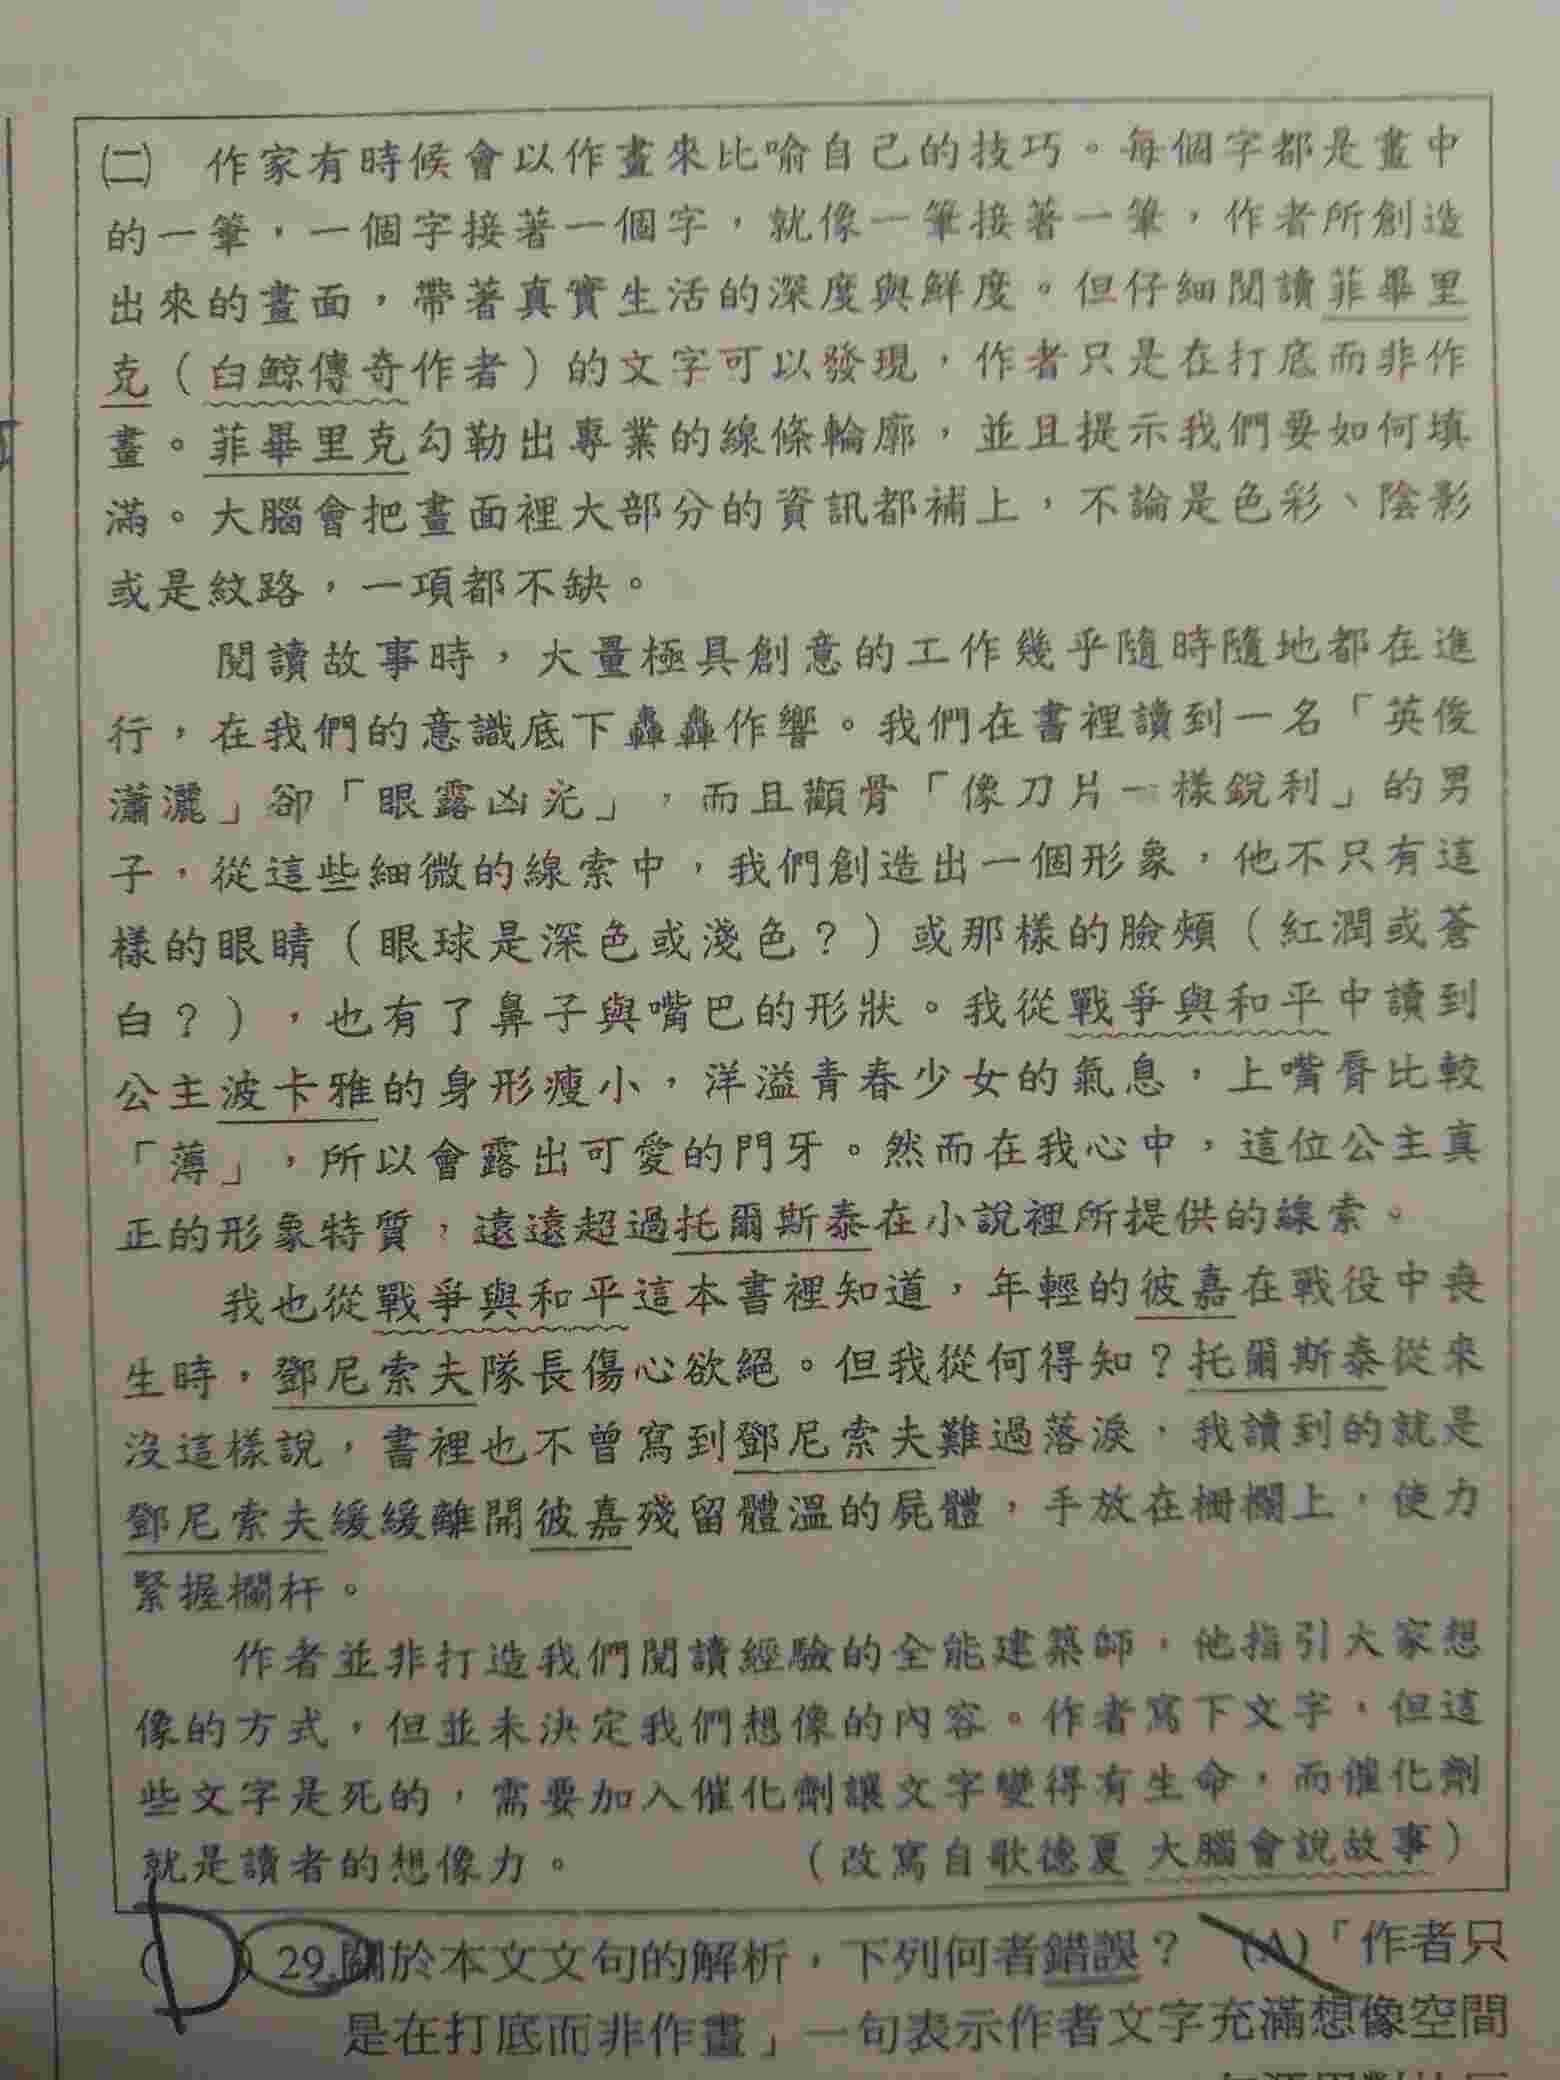 ㈡　作家有時候會以作畫來比喻自己的技巧。每個字都是畫中
的一筆，一個字接著一個字，就像一筆接著一筆，作者所創造
出來的畫面，帶著真實生活的深度與鮮度。但仔細閱讀菲畢里
克（白鯨傳奇作者）的文字可以發現，作者只是在打底而非作
畫。菲畢里克勾勒出專業的線條輪廓，並且提示我們要如何填
滿。大腦會把畫面裡大部分的資訊都補上，不論是色彩、陰影
或是紋路，一項都不缺。
閱讀故事時，大量極具創意的工作幾乎隨時隨地都在進
行，在我們的意識底下轟轟作響。我們在書裡讀到一名「英俊
瀟灑」卻「眼露凶光」，而且顴骨「像刀片一樣銳利」的男
子，從這些細微的線索中，我們創造出一個形象，他不只有這
樣的眼睛（眼球是深色或淺色？）或那樣的臉頰（紅潤或蒼
白？），也有了鼻子與嘴巴的形狀。我從戰爭與和平中讀到
公主波卡雅的身形瘦小，洋溢青春少女的氣息，上嘴唇比較
「薄」，所以會露出可愛的門牙。然而在我心中，這位公主真
正的形象特質，遠遠超過托爾斯泰在小說裡所提供的線索。
我也從戰爭與和平這本書裡知道，年輕的彼嘉在戰役中喪
生時，鄧尼索夫隊長傷心欲絕。但我從何得知？托爾斯泰從來
沒這樣說，書裡也不曾寫到鄧尼索夫難過落淚，我讀到的就是
鄧尼索夫緩緩離開彼嘉殘留體溫的屍體，手放在柵欄上，使力
緊握欄杆。
作者並非打造我們閱讀經驗的全能建築師，他指引大家想
像的方式，但並未決定我們想像的內容。作者寫下文字，但這
些文字是死的，需要加入催化劑讓文字變得有生命，而催化劑
就是讀者的想像力。（改寫自歌德夏 大腦會說故事）
（D）29.關於本文文句的解析，下列何者錯誤？　(A)「作者只
是在打底而非作畫」一句表示作者文字充滿想像空間